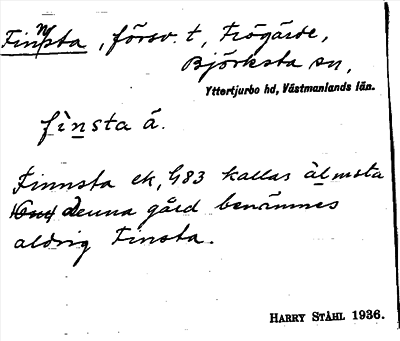 Finnsta, försv. t, Frögärde,
Björksta sn,
Yttertjurbo hd, Västmanlands län.
fi̇̀nsta ä.
Finnsta ek, 483 kallas àlmsta
denna gård benämnes
aldrig Finsta.
HARRY STÅHL 1936.